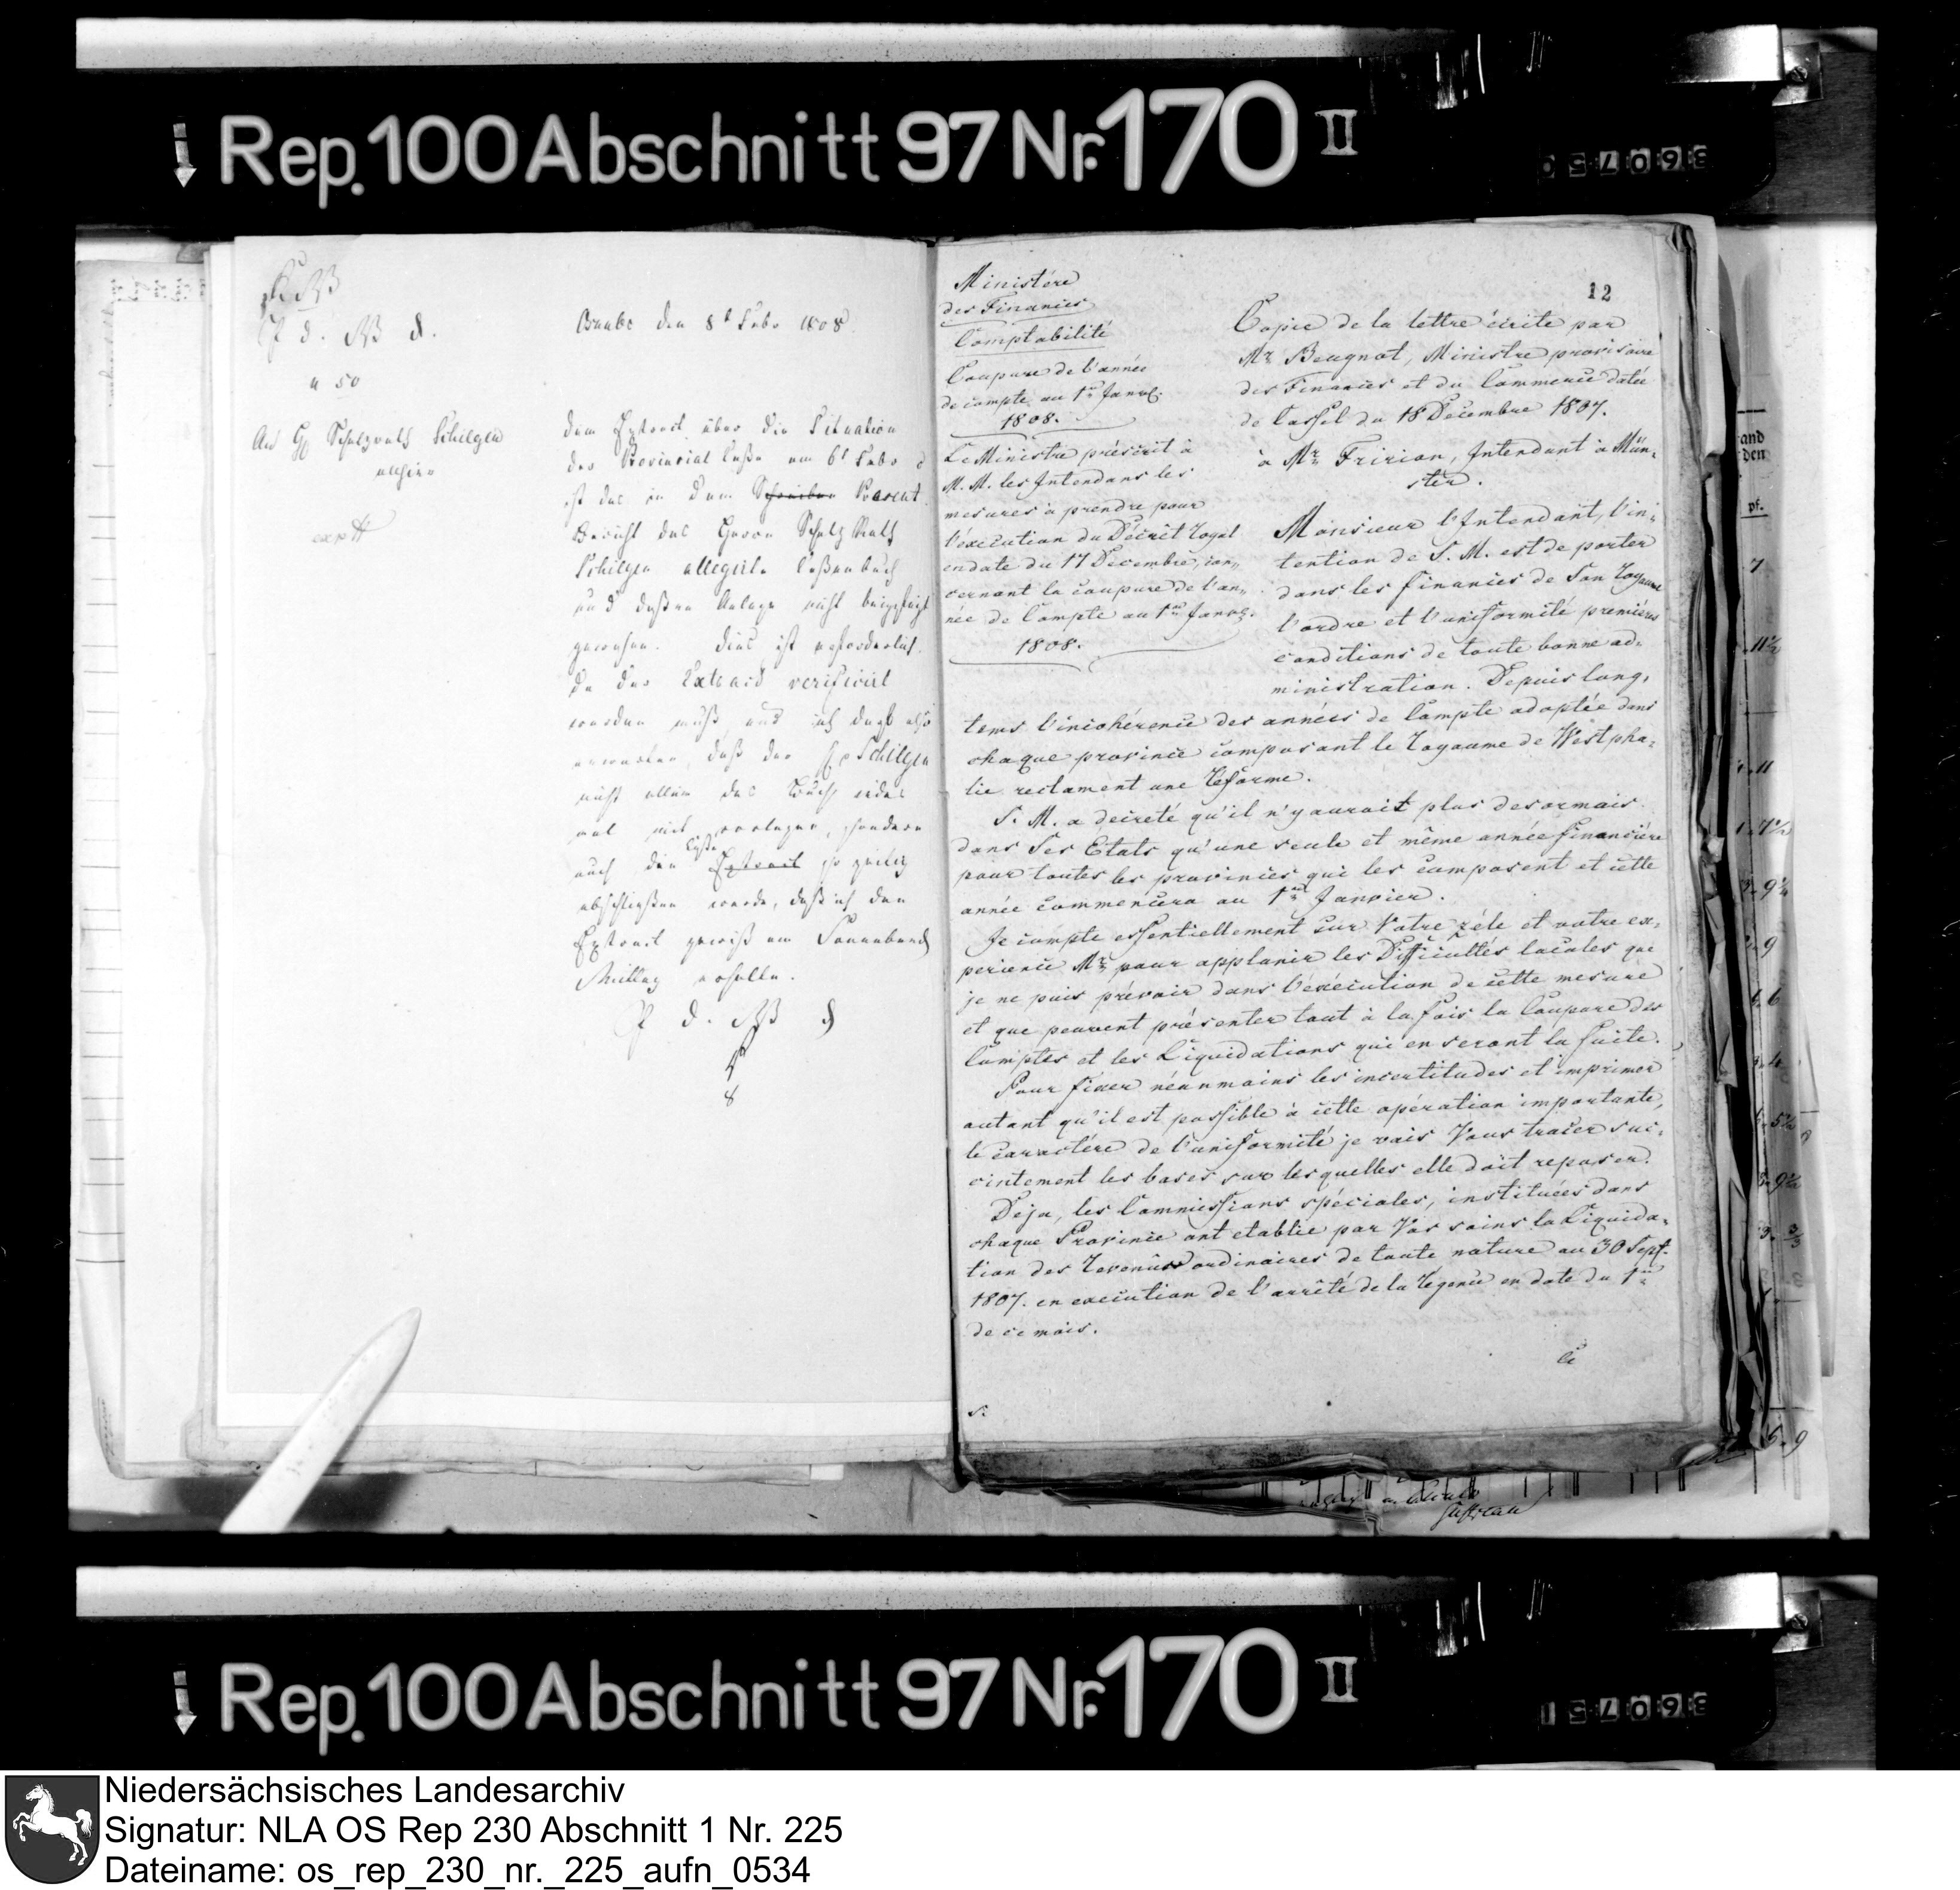 Rep. 100 Abschnitt 97 Nr. 170 II
360750
P. d. W. d.
Osnabr den 8t Febr 1808.
a 50
An H Schatzrath Schilgen
allhier
exp
Dem Extract über die Situation
der Provincial Casse am 6t Febr c
ist das in dem Schreiben Praesent.
Bericht des Herrn Schatz Raths
Schilgen allegirte Cassenbuch
und dessen Anlage nicht beigefügt
gewesen. Dies ist erforderlich
da der Extract verificirt
werden muß und ich darf also
erwarten, daß der H Schilgen
nicht allein das Buch jedes
mal mit vorlegen, sondern
auch den Extract so zeitig
abschließen werde, daß ich den
Extract gewiß am Sonnabend
Mittag erhalte.
P. d. W. d
8
12
Ministére
des Finances
Comptabilité
Coupure de l'année
de compte au 1er Janv.
1808.
Le Ministre préscrit à
M. M. les Intendans les
mesures à prendre pour
l'éxécution du Décrét royal
en date du 17 Decembre, con„
cernant la coupure de l'an„
née de Compte au 1er Janv.
1808.
Copie de la lettre écrite par
Mr Beugnot, Ministre provisoire
des Finances et du Commerce datée
de Cassel du 18 Décembre 1807.
à Mr Fririon, Intendant à Mün„
ster.
Monsieur l'Intendant, l'in„
tention de S. M. est de porter
dans les finances de Son royaume
l'ordre et l'uniformité premiéres
conditions de toute bonne ad„
ministration. Depuis long„
tems l'incohérence des années de Compte adoptée dans
chaque province composant le royaume de Westpha„
lie reclament une réforme.
S. M. a decreté qu'il n'y auroit plus desormais
dans Ses Etats qu'une seule et même année financiére
pour toutes les provinces qui les composent et cette
année commencera au 1er Janvier.
Je compte essentiellement sur Votre zéle et votre ex„
perience Mr pour applanir les Difficultés locales que
je ne puis prévoir dans l'éxécution de cette mesure
et que peuvent présenter tout à la fois la Coupure des
Comptes et les Liquidations qui en seront la suite.
Pour fixer néanmoins les incertitudes et imprimer
autant qu'il est possible à cette opération importante,
le caractére de l'uniformité je vais Vous tracer suc„
cintement les bases sur lesquelles elle doit reposer.
Déja, les Commissions spéciales, instituées dans
chaque Province ont etablie par Vos soins la Liquida„
tion des revenûs ordinaires de toute nature au 30 Sept.
1807. en execution de l'arrêté de la régence en date du 1er
de ce mois.
Ce
Rep. 100 Abschnitt 97 Nr. 170 II
360751
Niedersächsisches Landesarchiv
Signatur: NLA OS Rep 230 Abschnitt 1 Nr. 225
Dateiname: os_rep_230_nr._225_aufn_0534